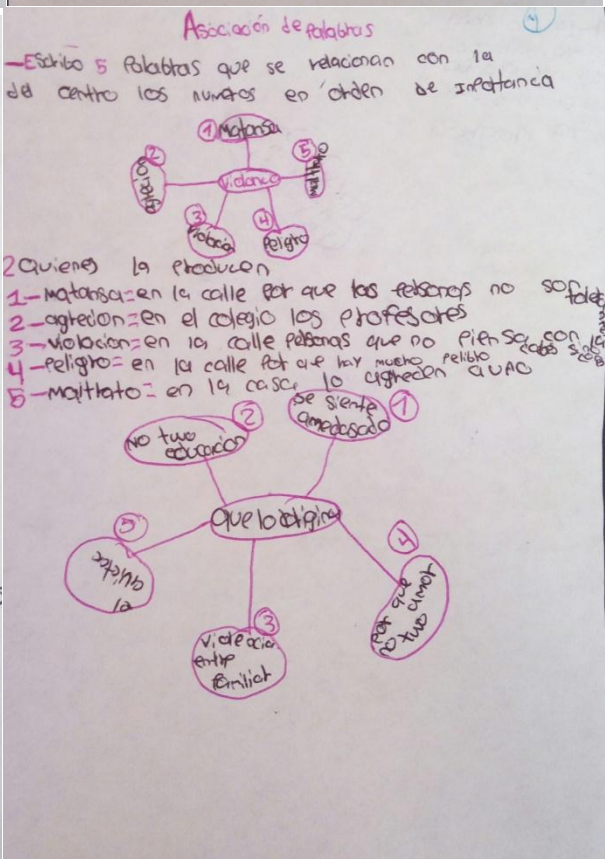 Asociación de Palabras
4
-Escribo 5 Palabras que se relacionan con la
del centro los numeros en orden de Inportancia
1 Matansa
2 agrecion
5 maltrato
violencia
3 violacion
4 Peligro
2 Quienes la Producen
1-Matansa=en la calle Por que las Personas no so
2-agrecion=en el colegio los Profesores
3-violacion=en la calle Personas que no Piensa con la
4-Peligro= en la calle Por que hay mucho
5-maltrato= en la casa lo agreden a uno
2 No tuvo educacion
1 Se siente amedasado
que lo origina
5 el
4 Por que no tuvo amor
3 violeacion entre familiar